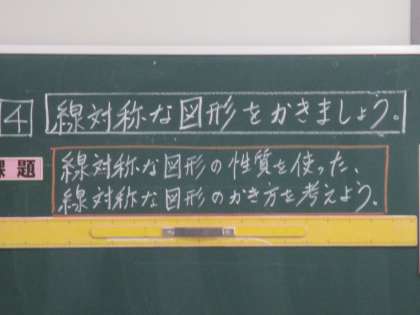 4 線対称な図形をかきましょう。
課題 線対称な図形の性質を使った、
線対称な図形のかき方を考えよう。